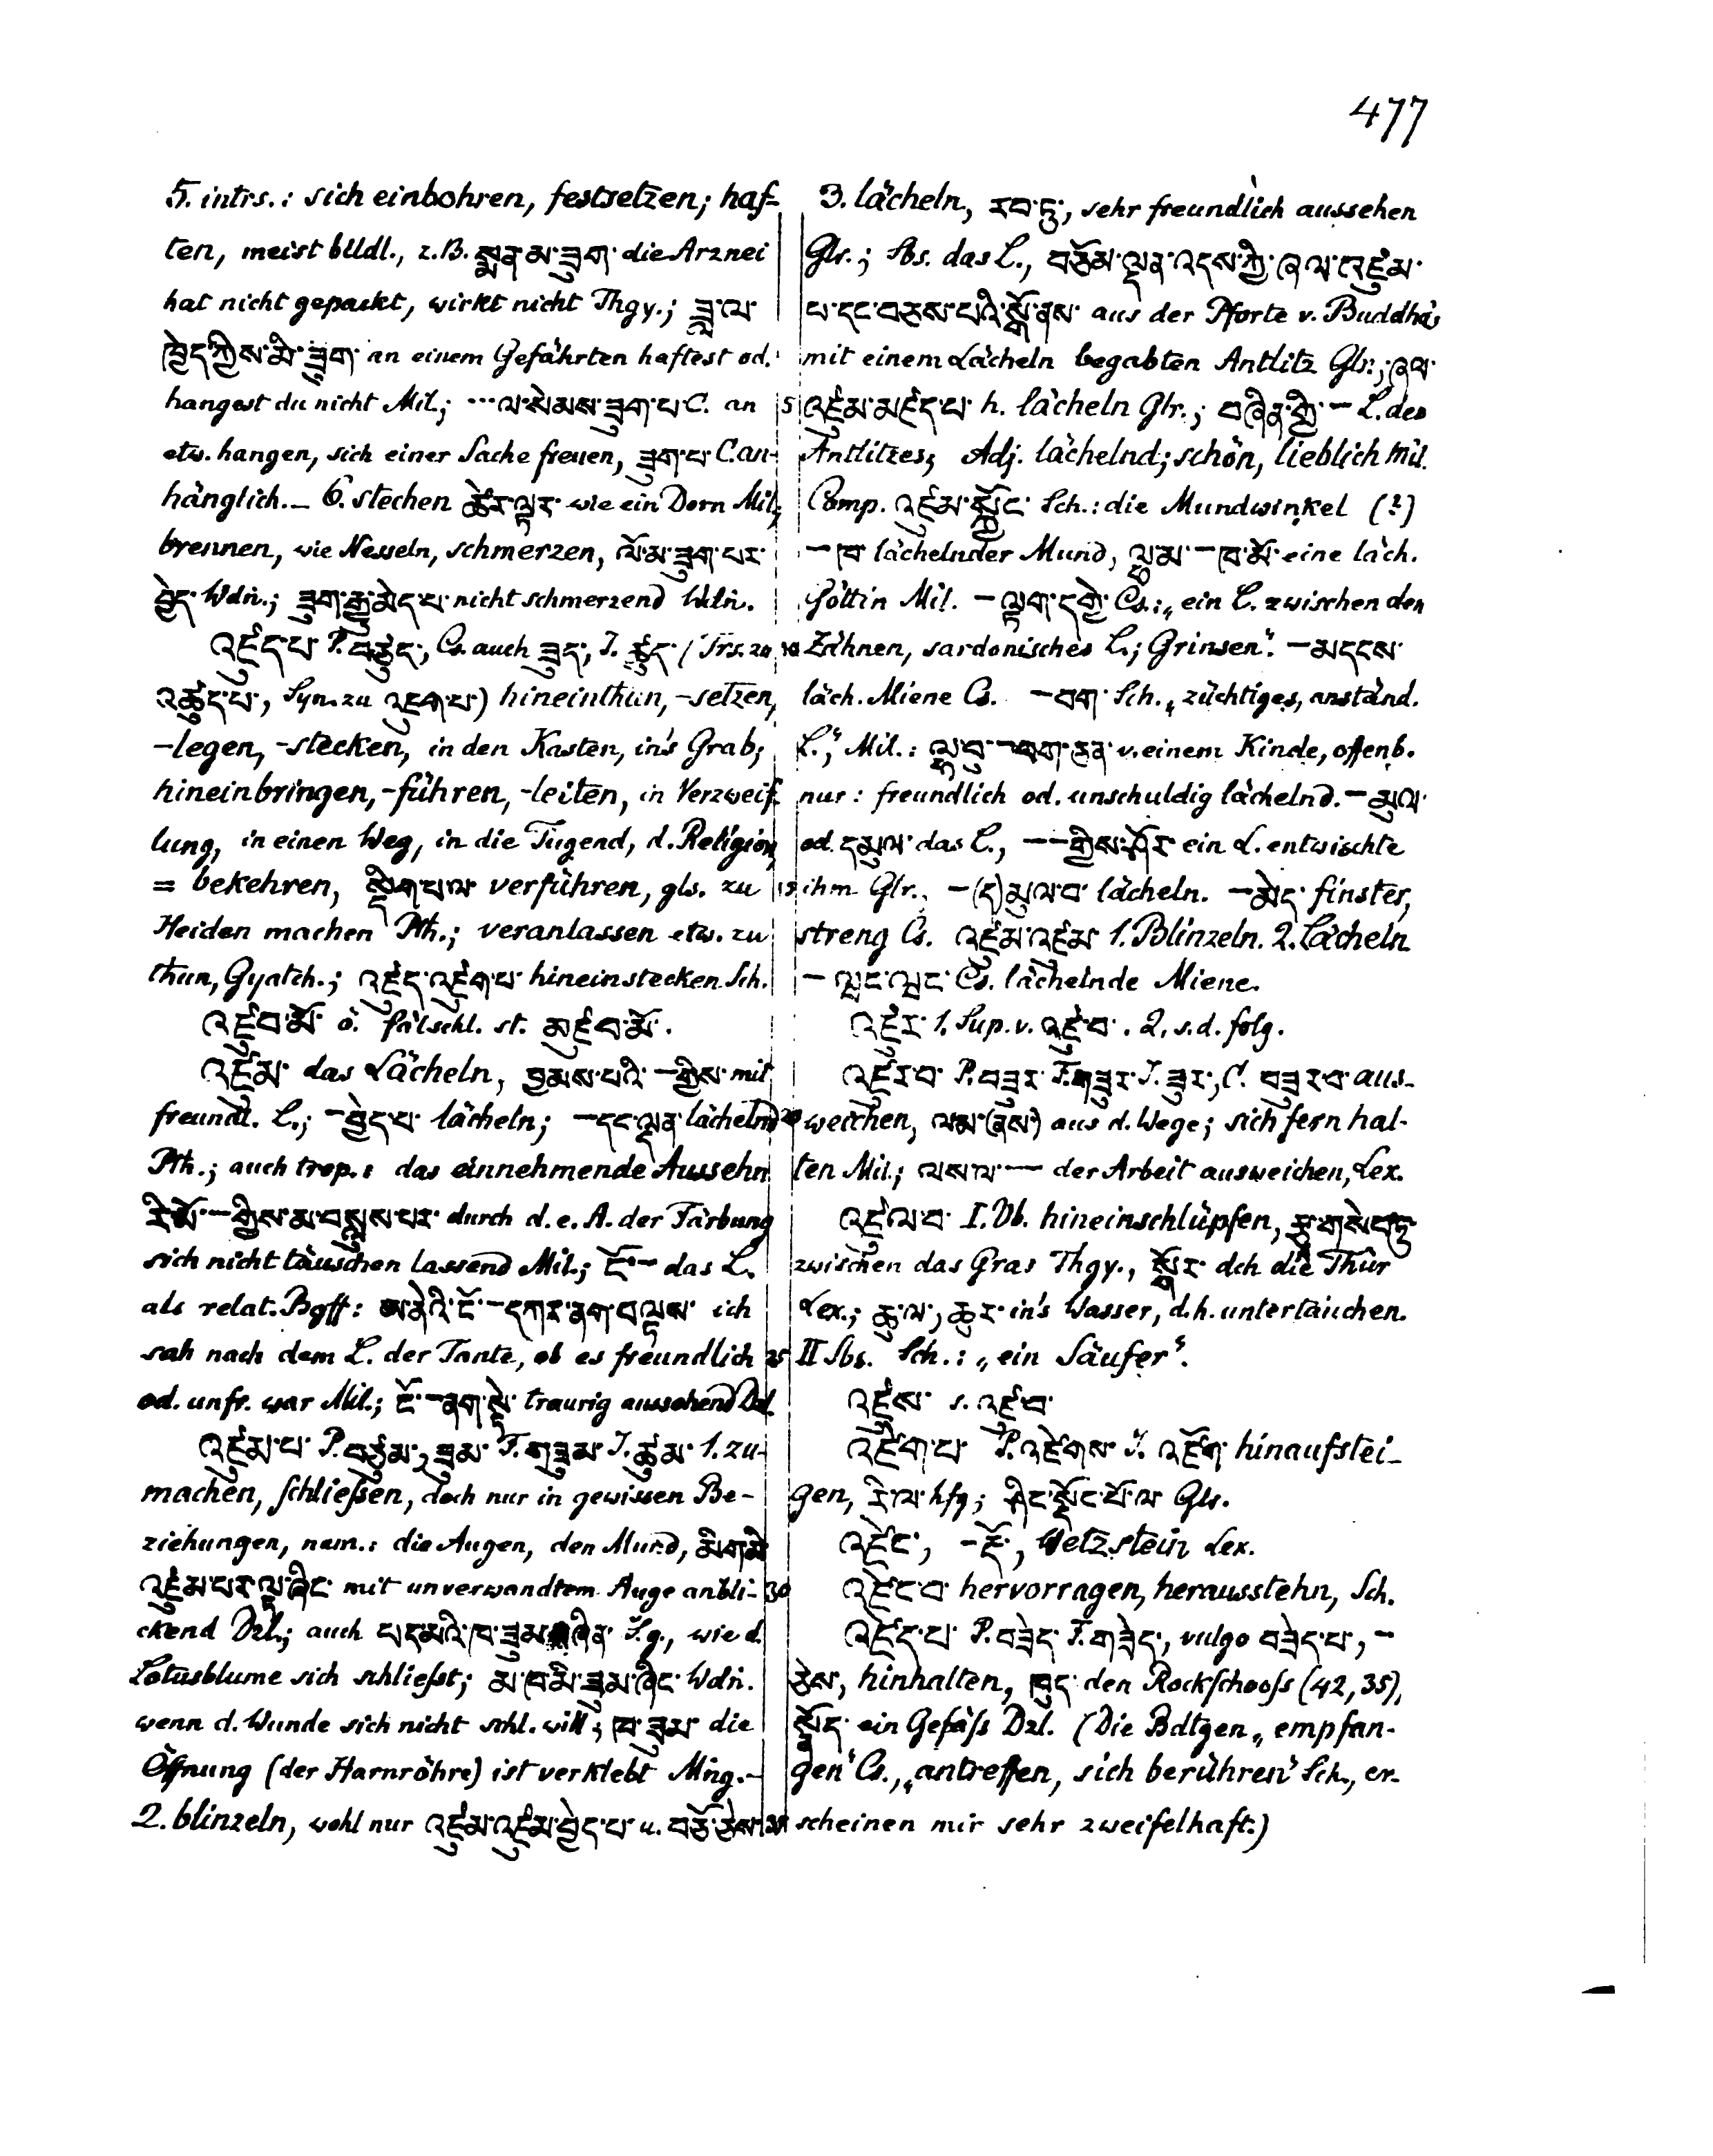 477
5. intrs.: sich einbohren, festsetzen; haf-
ten, meist bildl., z.B. སྨན་མ་ཟུག་ die Arznei
hat nicht gepackt, wirkt nicht Thgy.; ཟླ་ལ་
ཁྱེད་ཀྱིས་མི་ཟུག་ an einem Gefährten haftest od.
hangest du nicht Mil.; ...ལ་སེམས་ཟུག་པ་ C. an
etw. hangen, sich einer Sache freuen, ཟུག་པ་ C. an-
hänglich. - 6. stechen ཚེར་ལྟར་ wie ein Dorn Mil.;
brennen, wie Nesseln, schmerzen, ལོ་མ་ཟུག་པར་
བྱེད་ Wdn.; ཟུག་རྒྱུ་མེད་པ་ nicht schmerzend Wdn.
འཛུད་པ་ P. བཙུད་, Cs. auch ཟུད་, I. ཚུད་ (Trs. zu
འཚུད་པ་, Syn. zu འཇུག་པ་) hineinthun, -setzen,
-legen, -stecken, in den Kasten, in's Grab;
hineinbringen, -führen, -leiten, in Verzweif-
lung, in einen Weg, in die Tugend, d. Religion
= bekehren, སྡིག་པ་ལ་ verführen, gls. zu
Heiden machen Pth.; veranlassen etw. zu
thun, Gyatch.; འཛུད་འཛུག་པ་ hineinstecken Sch.
འཛུབ་མོ་ ö. fälschl. st. མཛུབ་མོ་.
འཛུམ་ das Lächeln, བྱམས་པའི་ -གྱིས་ mit
freundl. L.; -བྱེད་པ་ lächeln; -དང་ལྡན་ lächelnd
Pth.; auch trop.: das einnehmende Aussehn
རི་མོ་ -གྱིས་མ་བསླུས་པར་ durch d. e. A. der Färbung
sich nicht täuschen lassend Mil.; ངོ་- das L.
als relat. Bgff: ཨ་ནེའི་ངོ་ -དཀར་ནག་བལྟས་ ich
sah nach dem L. der Tante, ob es freundlich
od. unfr. war Mil.; ངོ་-ནག་སྟེ་ traurig aussehend Dzl.
འཛུམ་པ་ P. བཙུམ་, ཟུམ་ F. གཟུམ་ I. ཚུམ་ 1. zu-
machen, schließen, doch nur in gewissen Be-
ziehungen, nam.: die Augen, den Mund, མིག་མི་
འཛུམ་པར་ལྟ་ཞིང་ mit unverwandtem Auge anbli-
ckend Dzl.; auch པདམའི་ཁ་ཟུམ་ ཞིན་ S.g., wie d.
Lotusblume sich schließt; མ་ཁ་མི་ཟུམ་ཞིང་ Wdn.
wenn d. Wunde sich nicht schl. will; ཁ་ཟུམ་ die
Öffnung (der Harnröhre) ist verklebt Mng.-
2. blinzeln, wohl nur འཛུམ་འཛུམ་བྱེད་པ་ u. བཙོ་ཅེས་
3. lächeln, རབ་ཏུ་, sehr freundlich aussehen
Glr.; Sbs. das L., བཅོམ་ལྡན་འདས་ཀྱི་ཞལ་འཛུམ་
པ་དང་བཅས་པའི་སྒོ་ནས་ aus der Pforte v. Buddha's
mit einem Lächeln begabten Antlitz Glr.; ཞལ་
5 འཛུམ་མཛད་པ་ h. lächeln Glr.; བཞིན་གྱི་ - L. des
Antlitzes, Adj. lächelnd; schön, lieblich Mil.
Comp. འཛུམ་སྐྱོང་ Sch.: die Mundwinkel (?)
-ཁ་ lächelnder Mund, ལྷ་མ་ -ཁ་མོ་ eine läch.
Göttin Mil. -ལྟག་དགྱེ་ Cs.: „ein L. zwischen den
10 Zähnen, sardonisches L.; Grinsen". -མདངས་
läch. Miene Cs. -བག་ Sch. „züchtiges, anständ.
L.", Mil.: ལྟ་བུ་ -བག་ཅན་ v. einem Kinde, offenb.
nur: freundlich od. unschuldig lächelnd. -མུལ་
od. དམུལ་ das L., --གྱིས་ཤོར་ ein L. entwischte
15 ihm Glr., -(ད)མུལ་བ་ lächeln. -མེད་ finster,
streng Cs. འཛུམ་འཛུམ་ 1. Blinzeln. 2. Lächeln
-ལྨང་ལྨང་ Cs. lächelnde Miene.
འཛུར་ 1. Sup. v. འཛུ་བ་. 2. s. d. folg.
འཛུར་བ་ P. བཟུར་ F. གཟུར་ I. ཟུར་, C. བཟུར་བ་ aus-
20 weichen, ལམ་(ནས་) aus d. Wege; sich fern hal-
ten Mil.; ལས་ལ་ -- der Arbeit ausweichen, Lex.
འཛུལ་བ་ I. Vb. hineinschlüpfen, རྩྭ་གསེབ་ཏུ་
zwischen das Gras Thgy., སྒོར་ dch die Thür
Lex.; ཆུ་ལ་, ཆུར་ in's Wasser, d.h. untertauchen.
25 II Sbs. Sch.: „ein Säufer".
འཛུས་ s. འཛུ་བ་
འཛེག་པ་ P. འཛེགས་ I. འཛོག་ hinaufstei-
gen, རི་ལ་ hfg; ཤིང་སྡོང་པོ་ལ་ Glr.
འཛེང་, -རྡོ་, Wetzstein Lex.
30 འཛེང་བ་ hervorragen, herausstehn, Sch.
འཛེད་པ་ P. བཟེད་ F. གཟེད་, vulgo བཟེད་པ་, -
ཅེས་, hinhalten, ཁུད་ den Rockschooss (42, 35),
སྣོད་ ein Gefäss Dzl. (Die Bdtgen „empfan-
gen" Cs., „antreffen, sich berühren" Sch., er-
scheinen mir sehr zweifelhaft.)